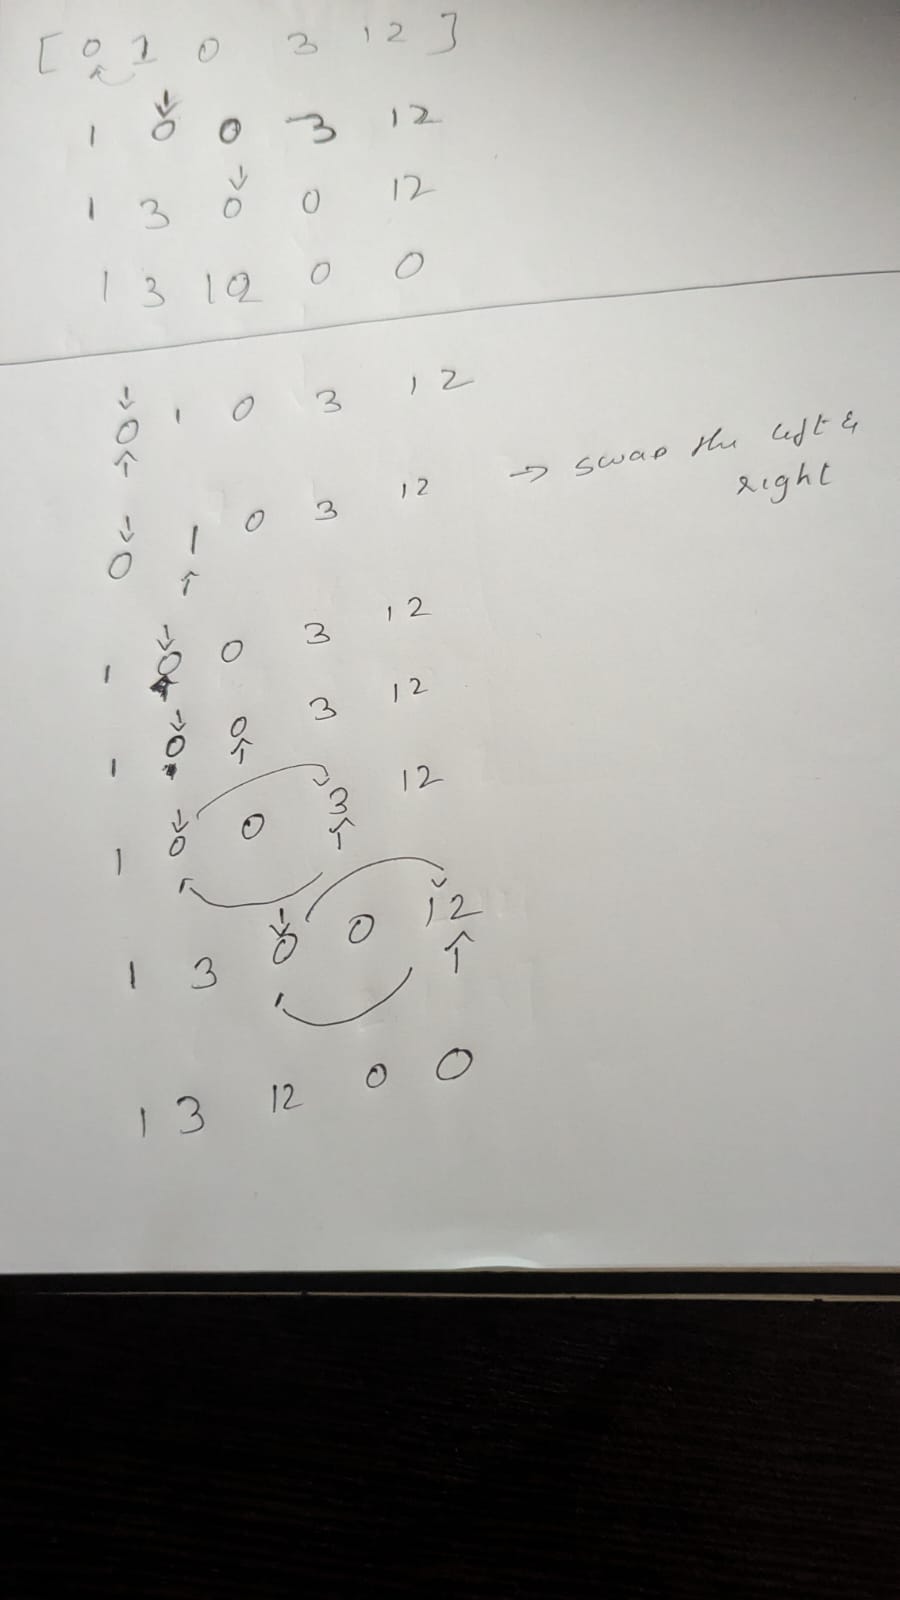 [ 0 1 0 3 12 ]
1 0 0 3 12
1 3 0 0 12
1 3 12 0 0
0 1 0 3 12
0 1 0 3 12 → swap the left & right
1 0 0 3 12
1 0 0 3 12
1 0 0 3 12
1 3 0 0 12
1 3 12 0 0